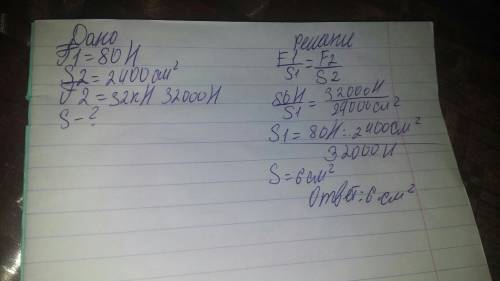 Дано
F1=80Н
S2=2400см²
F2=32кН 32000Н
S-?
решение
F1/S1=F2/S2
80Н/S1=32000Н/24000см²
S1=80Н·2400см²/32000Н
S=6см²
Ответ:6см²